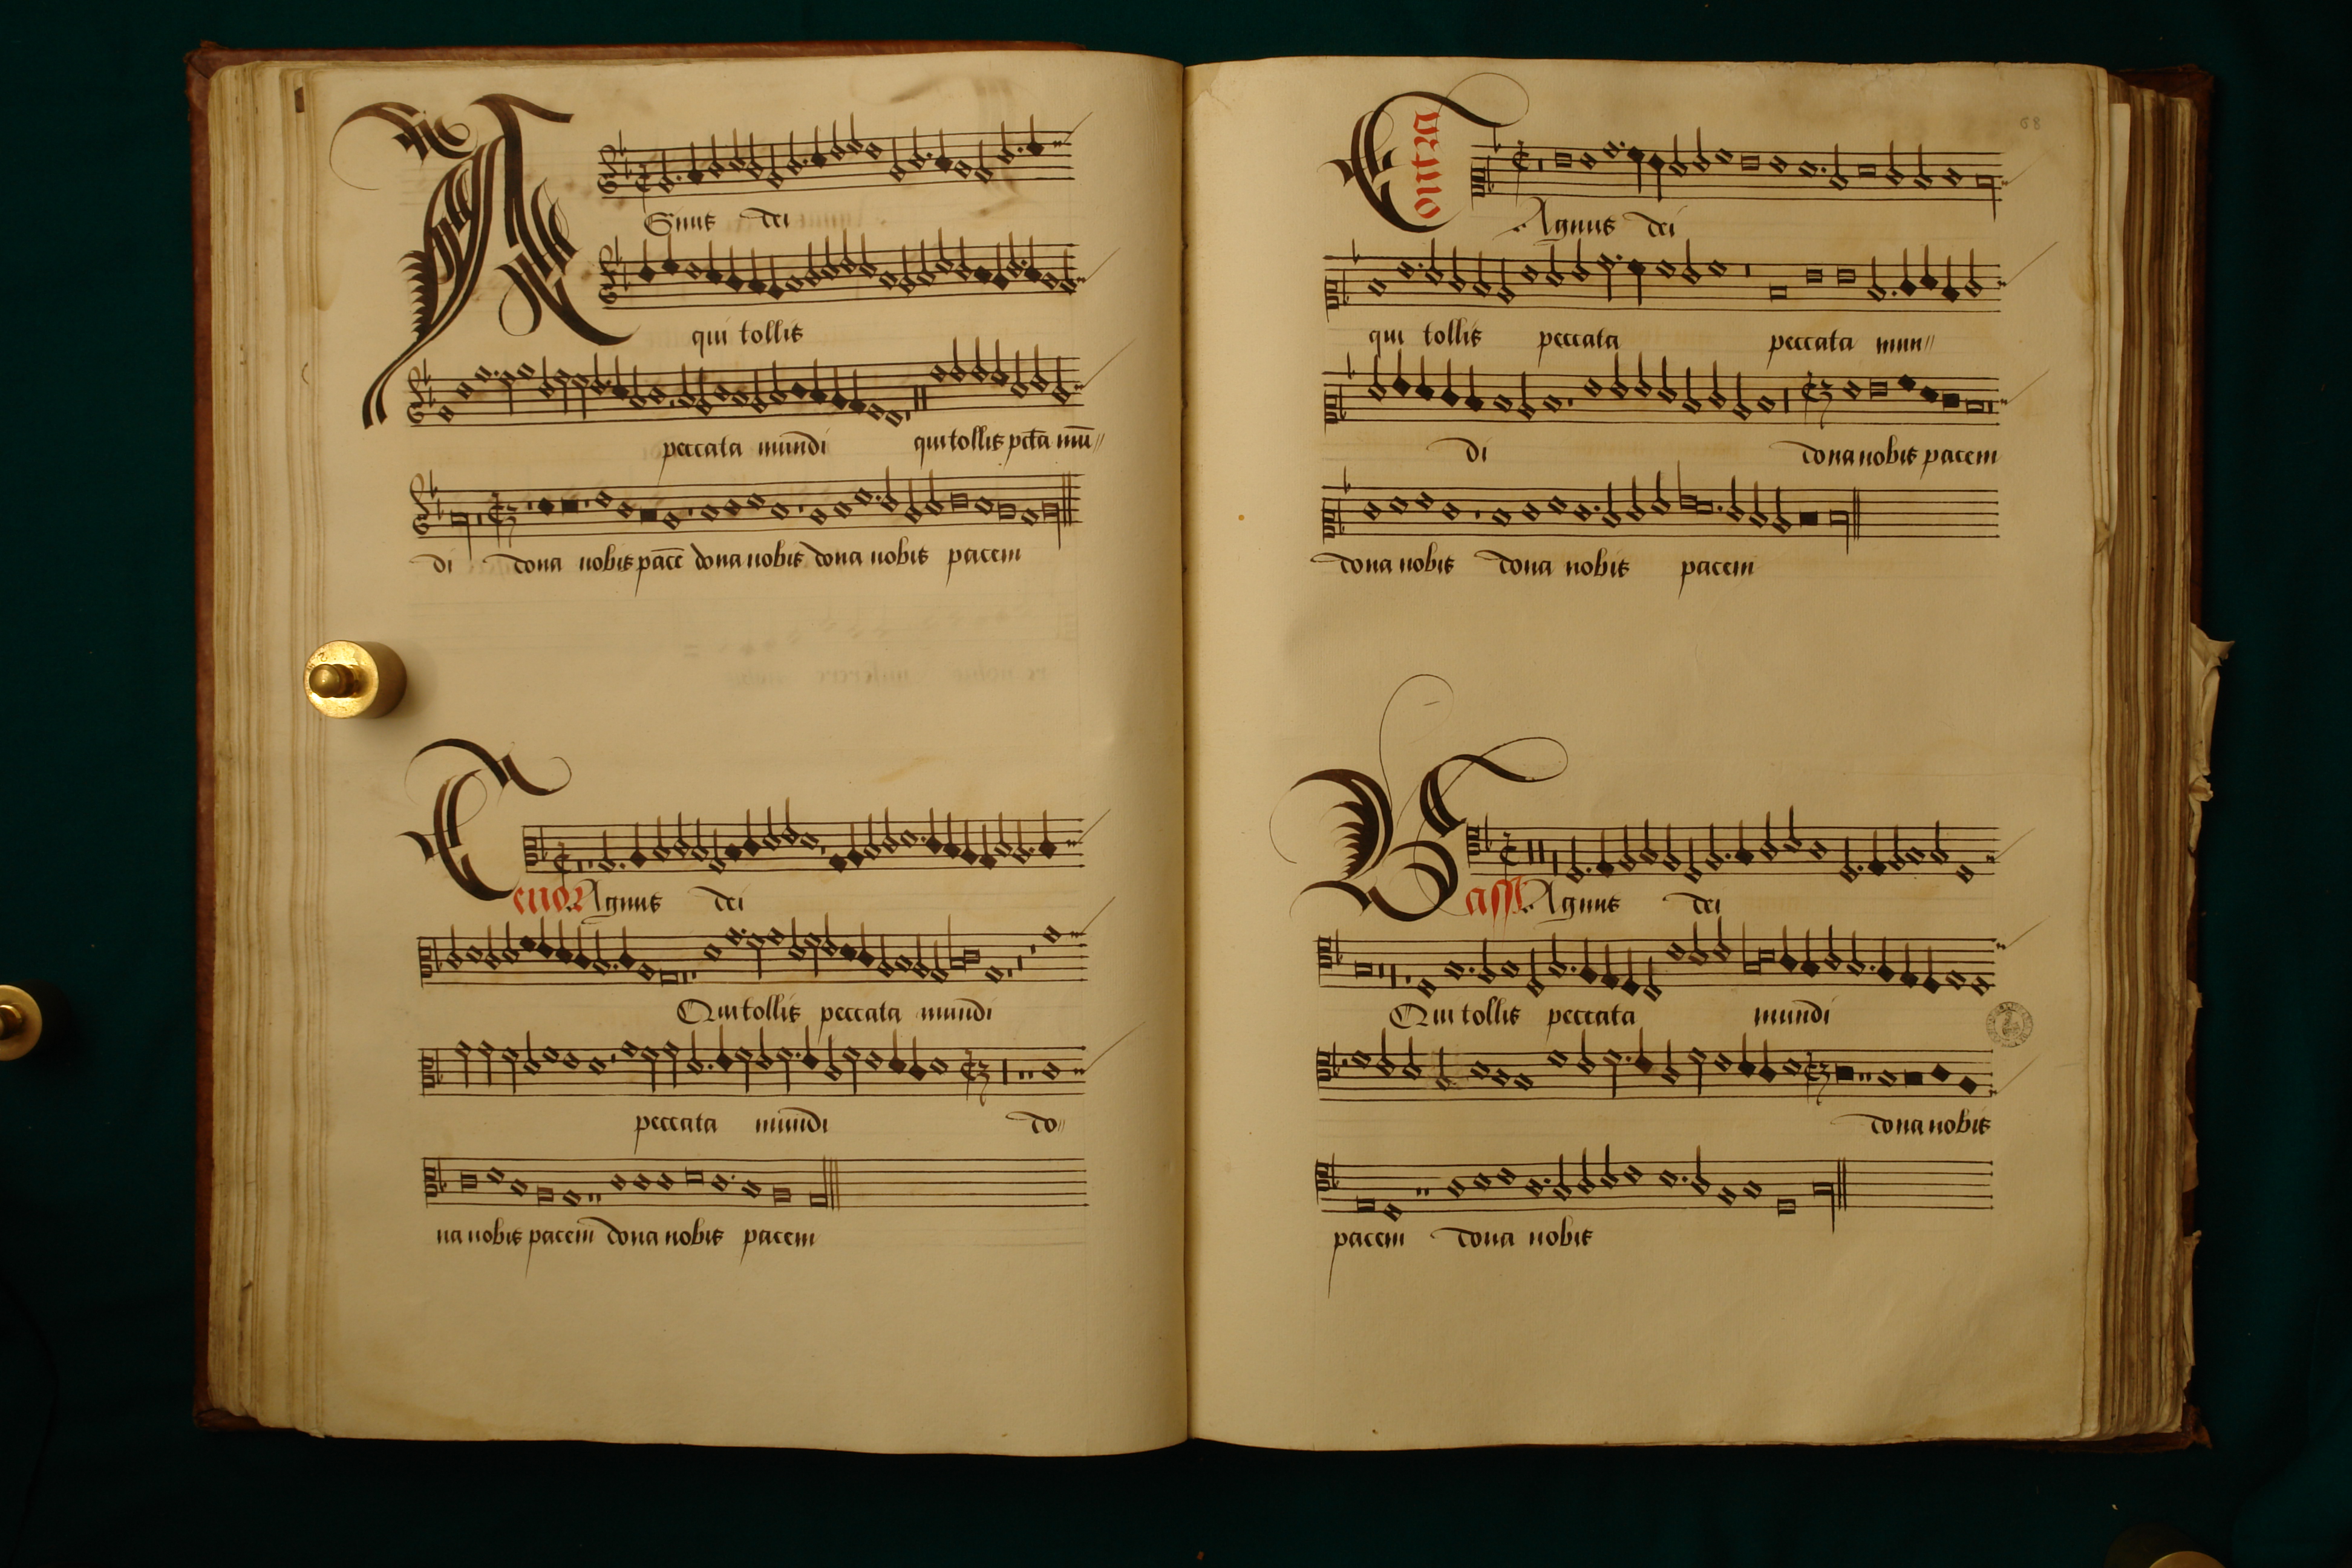 Agnus dei
qui tollis
peccata mundi qui tollis pctā mū
di dona nobis pacē dona nobis dona nobis pacem
Tenor Agnus dei
Qui tollis peccata mundi
peccata mundi do
na nobis pacem dona nobis pacem
68
Contra
Agnus dei
qui tollis peccata peccata mun
di dona nobis pacem
dona nobis dona nobis pacem
Bass Agnus dei
Qui tollis peccata mundi
dona nobis
pacem dona nobis